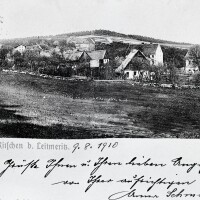 Kitschen b. Leitmeritz. 9. 8. 1910
Grüße Ihnen u Ihren lieben
von Ihrer aufrichtigen
Anna